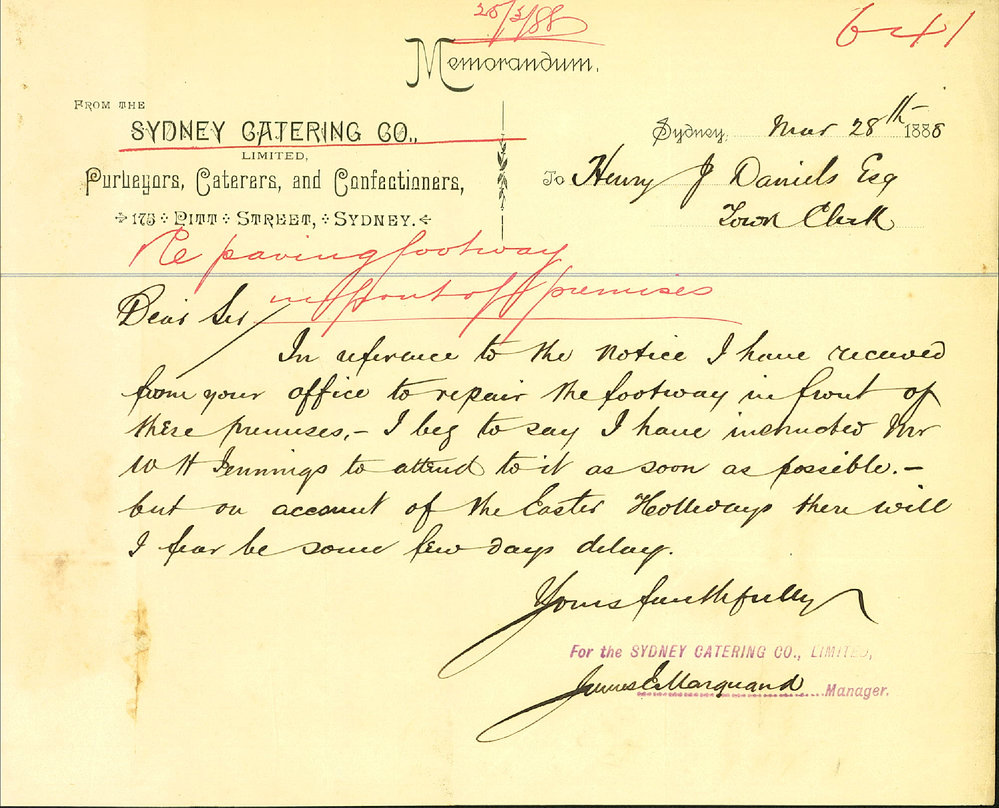 28/3/88
641
Memorandum.
FROM THE
SYDNEY CATERING CO.,
LIMITED,
Purveyors, Caterers, and Confectioners,
175 PITT STREET, SYDNEY.
Sydney, Mar 28th 1888
To Henry J Daniels Esq
Town Clerk
Re paving footway
in front off premises
Dear Sir
In reference to the notice I have received
from your office to repair the footway in front of
these premises, - I beg to say I have instructed Mr
W H Jennings to attend to it as soon as possible. -
but on account of the Easter Hollidays there will
I fear be some few days delay.
Yours faithfully
For the SYDNEY CATERING CO., LIMITED,
James E Marquand Manager.